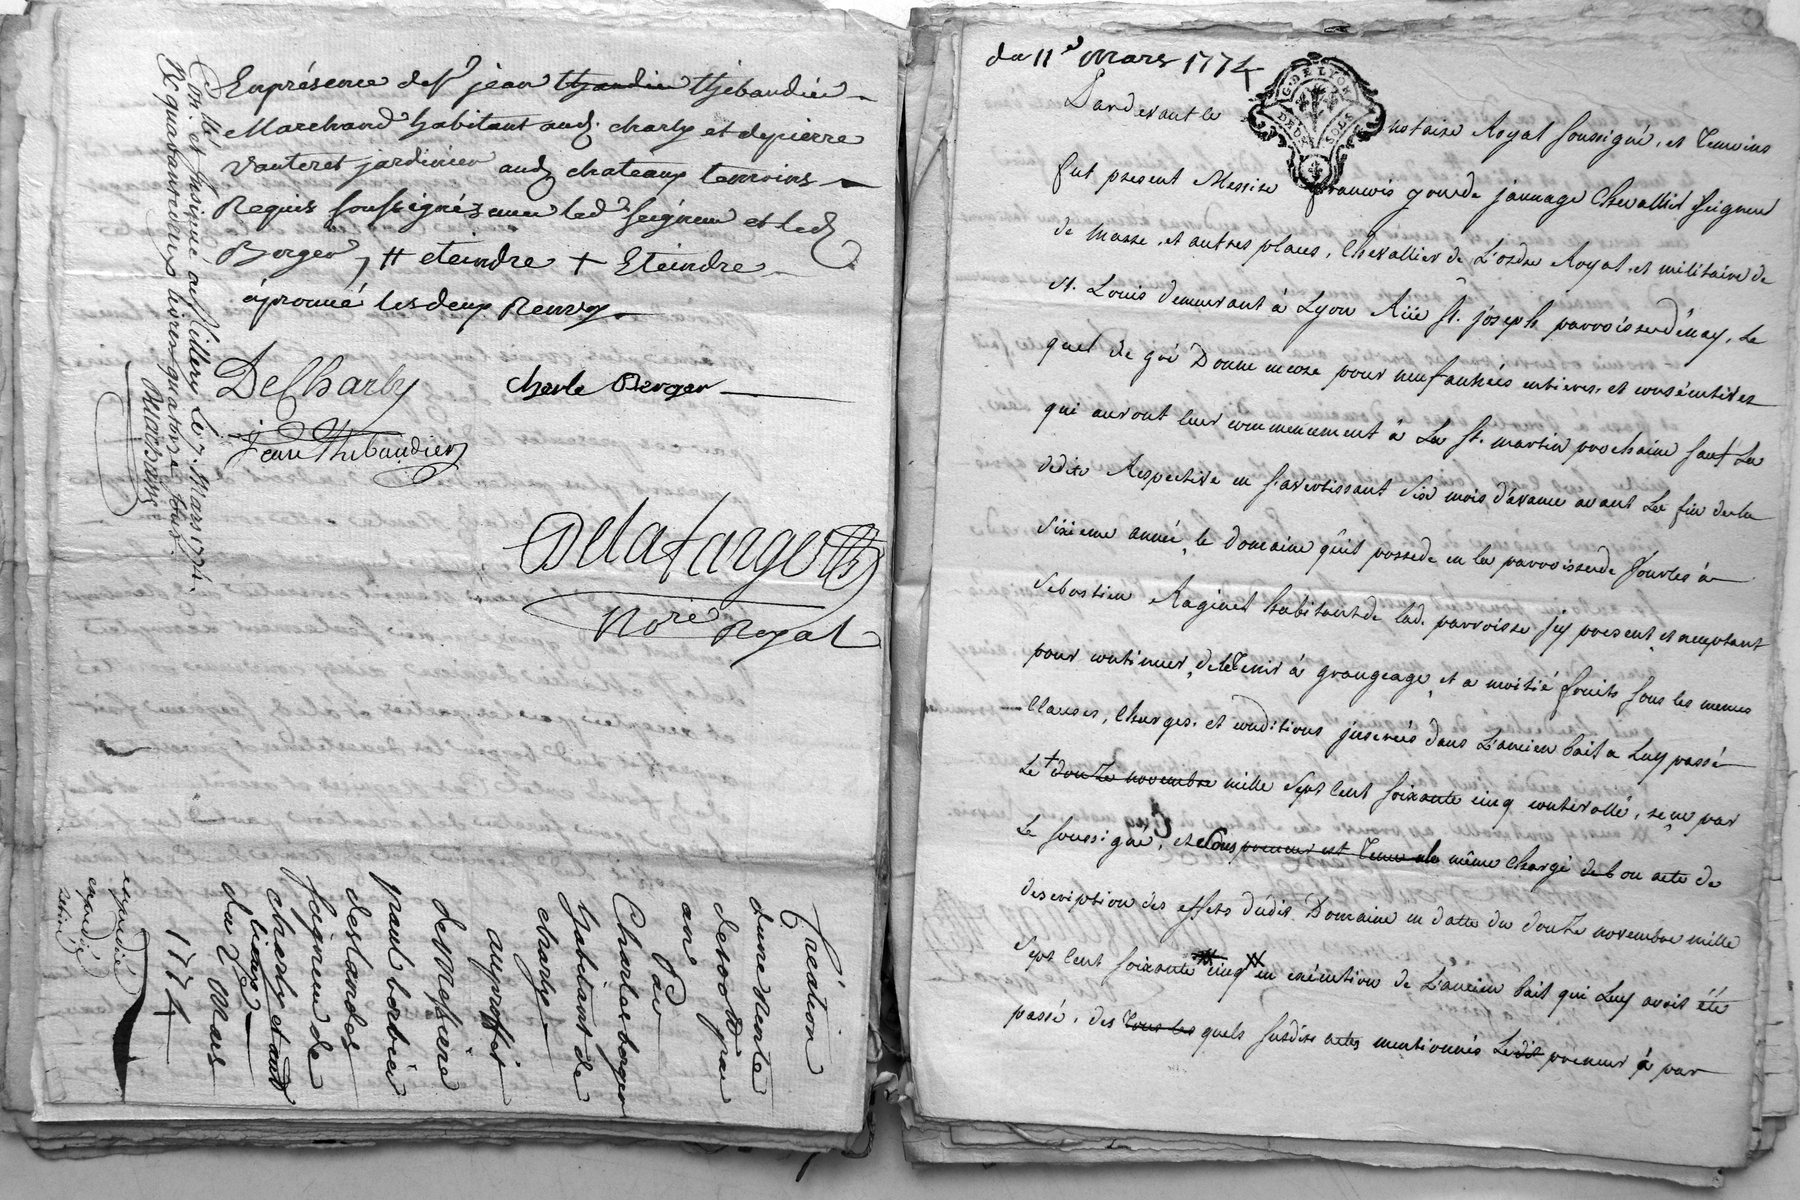 En présence de Sr jean thjandin thjebaudier
Marchand habitant aud. charly et de pierre
Vanteret jardinier aud. chateau temoins
Requis soussignéz avec led. Seigneur et led.
Berger, # eteindre + Eteindre
aprouvé les deux Renvoy
DeCharly
Charle Berger
jean Thibaudier
Delafarge
Nore Royal
Con.llé et Insinué à Millery le 7. Mars 1774.
R. quarante deux livres quatorze sous
Création
d'une Rente
de 1000 ₶ par
an
Par
Charles berger
habitant de
charly
au proffit
de Messire
paul barbier
deslandes
Seigneur de
charly et aud
lieux
du 2e Mars
1774
expedié
expedié
du 11e Mars 1774
G. DE LYON
DEUX SOLS
Pardevant le notaire Royal soussigné, et Temoins
fut present Messire françois yon de jonnage Chevallier seigneur
de masse, et autres places, Chevallier de L'ordre Royal et militaire de
st. Louis demeurant à Lyon Rüe st. joseph parroisse d'enay, Le
quel de gré Donne encore pour neuf années entieres, et consécutives
qui auront leur commencement à La st. martin prochaine sauf La
dedite Respective en s'avertissant six mois d'avance avant La fin de la
sixieme année, le domaine qu'il possede en la parroisse de Jourles à
Sebastien Raginel habitant de lad. parroisse jcy present, et acceptant
pour continuer de le Tenir à grangeage, et a moitié fruits sous les memes
Clauses, Charges, et conditions jnserées dans L'ancien bail a Luy passé
Le + douze novembre mille sept cent soixante cinq controllé, reçu par
Le soussigné, et preneur est Tenu a la même Charge de b ou acte de
description des effets dudit Domaine en datte du douze novembre mille
sept cent soixante cinq en exécution de L'ancien bail qui Luy avoit été
passé, des Tous les quels susdits actes mentionnés Ledit preneur à par